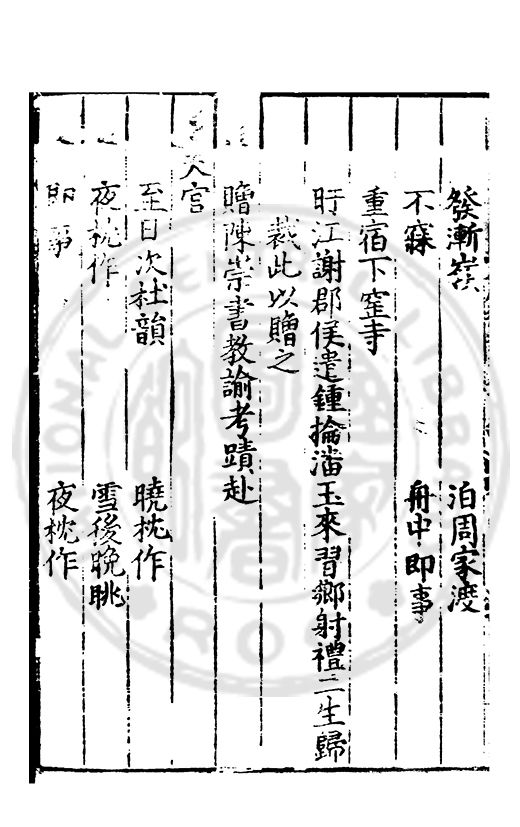 發漸嶺 泊周家渡
不寐 舟中即事
重宿下窪寺
盱江謝郡侯遣鍾掄潘玉來習鄉射禮二生歸
裁此以贈之
贈陳崇書教諭考蹟赴
天官
至日次杜韻 曉枕作
夜枕作 雪後晚眺
即事 夜枕作